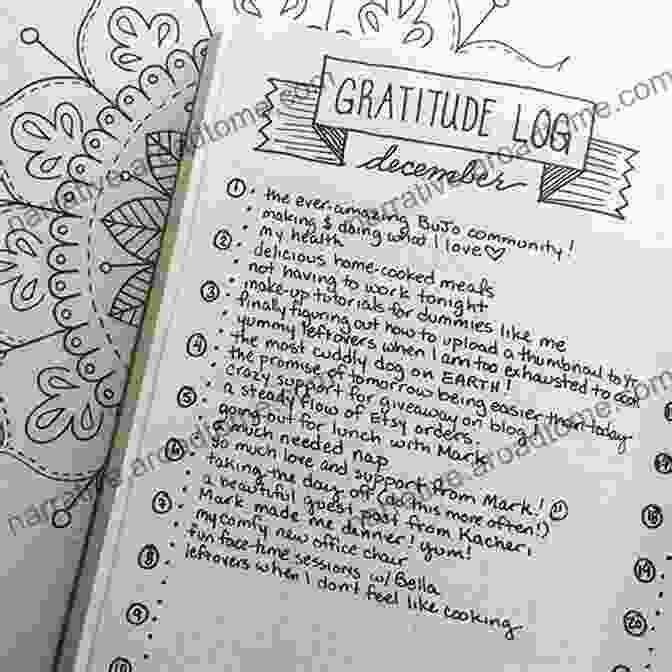 GRATITUDE LOG
december
① • the ever-amazing BuJo community!
• making & doing what I love ♡
• my health
② • delicious home-cooked meals
• not having to work tonight
• make-up tutorials for dummies like me
③ • finally figuring out how to upload a thumbnail to YT
• yummy leftovers when I am too exhausted to cook
• the most cuddly dog on EARTH!
④ • the promise of tomorrow being easier than today
• crazy support for giveaway on blog!
• a steady flow of Etsy orders.
⑤ • going out for lunch with Mark
• a much needed nap
• so much love and support from Mark! :)
⑥ • taking the day off (do this more often!)
• a beautiful guest post from Kacheri
• Mark made me dinner! yum!
⑦ • my comfy new office chair
• fun face-time sessions w/ Bella
• leftovers when I don't feel like cooking
⑧
⑨
⑩
⑱
⑲
⑳
narrative.aroadtome.com